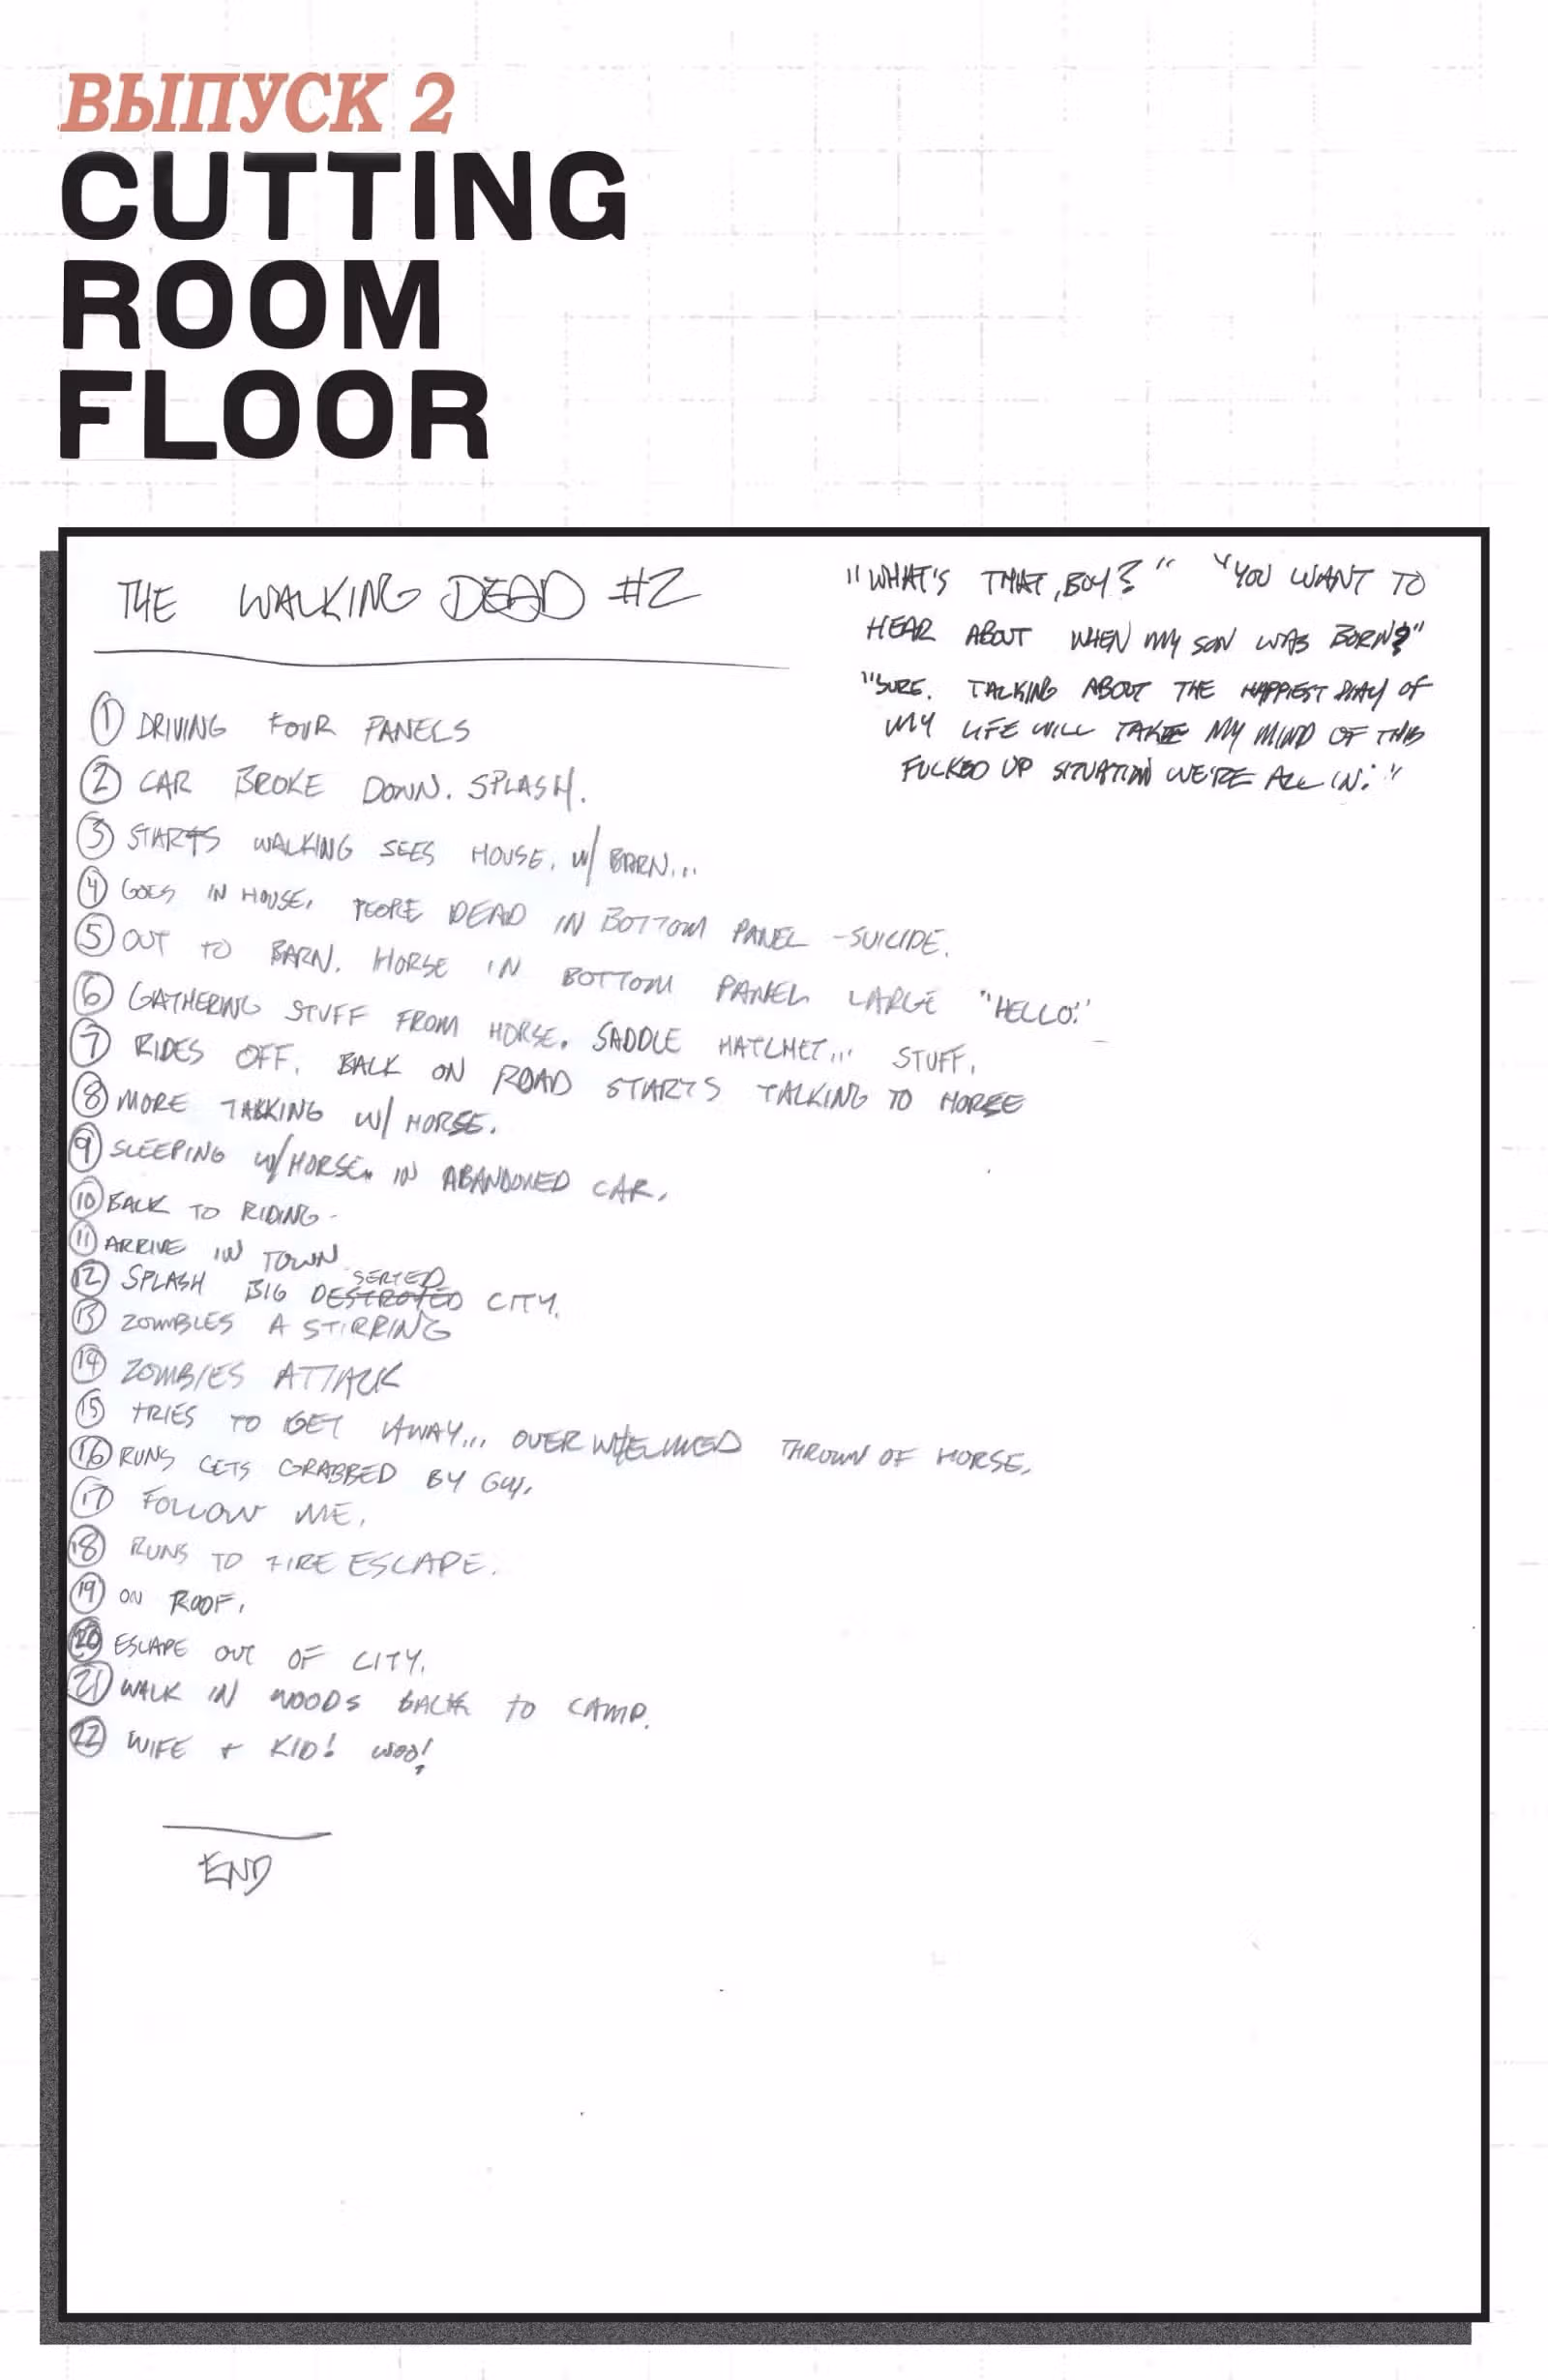 ВЫПУСК 2
CUTTING
ROOM
FLOOR
THE WALKING DEAD #2
"WHAT'S THAT, BOY?" "YOU WANT TO
HEAR ABOUT WHEN MY SON WAS BORN?"
"SURE. TALKING ABOUT THE HAPPIEST DAY OF
MY LIFE WILL TAKE MY MIND OF THIS
FUCKED UP SITUATION WE'RE ALL IN."
① DRIVING FOUR PANELS
② CAR BROKE DOWN. SPLASH.
③ STARTS WALKING SEES HOUSE. W/ BARN...
④ GOES IN HOUSE. PEOPLE DEAD IN BOTTOM PANEL - SUICIDE.
⑤ OUT TO BARN. HORSE IN BOTTOM PANEL LARGE "HELLO."
⑥ GATHERING STUFF FROM HORSE. SADDLE HATCHET... STUFF.
⑦ RIDES OFF. BACK ON ROAD STARTS TALKING TO HORSE
⑧ MORE TALKING W/ HORSE.
⑨ SLEEPING W/ HORSE. IN ABANDONED CAR.
⑩ BACK TO RIDING -
⑪ ARRIVE IN TOWN
⑫ SPLASH BIG DESERTED CITY.
⑬ ZOMBIES A STIRRING
⑭ ZOMBIES ATTACK
⑮ TRIES TO GET AWAY... OVERWHELMED THROWN OF HORSE.
⑯ RUNS GETS GRABBED BY GUY.
⑰ FOLLOW ME.
⑱ RUNS TO FIRE ESCAPE.
⑲ ON ROOF.
⑳ ESCAPE OUT OF CITY.
㉑ WALK IN WOODS BACK TO CAMP.
㉒ WIFE + KID! WOO!
END